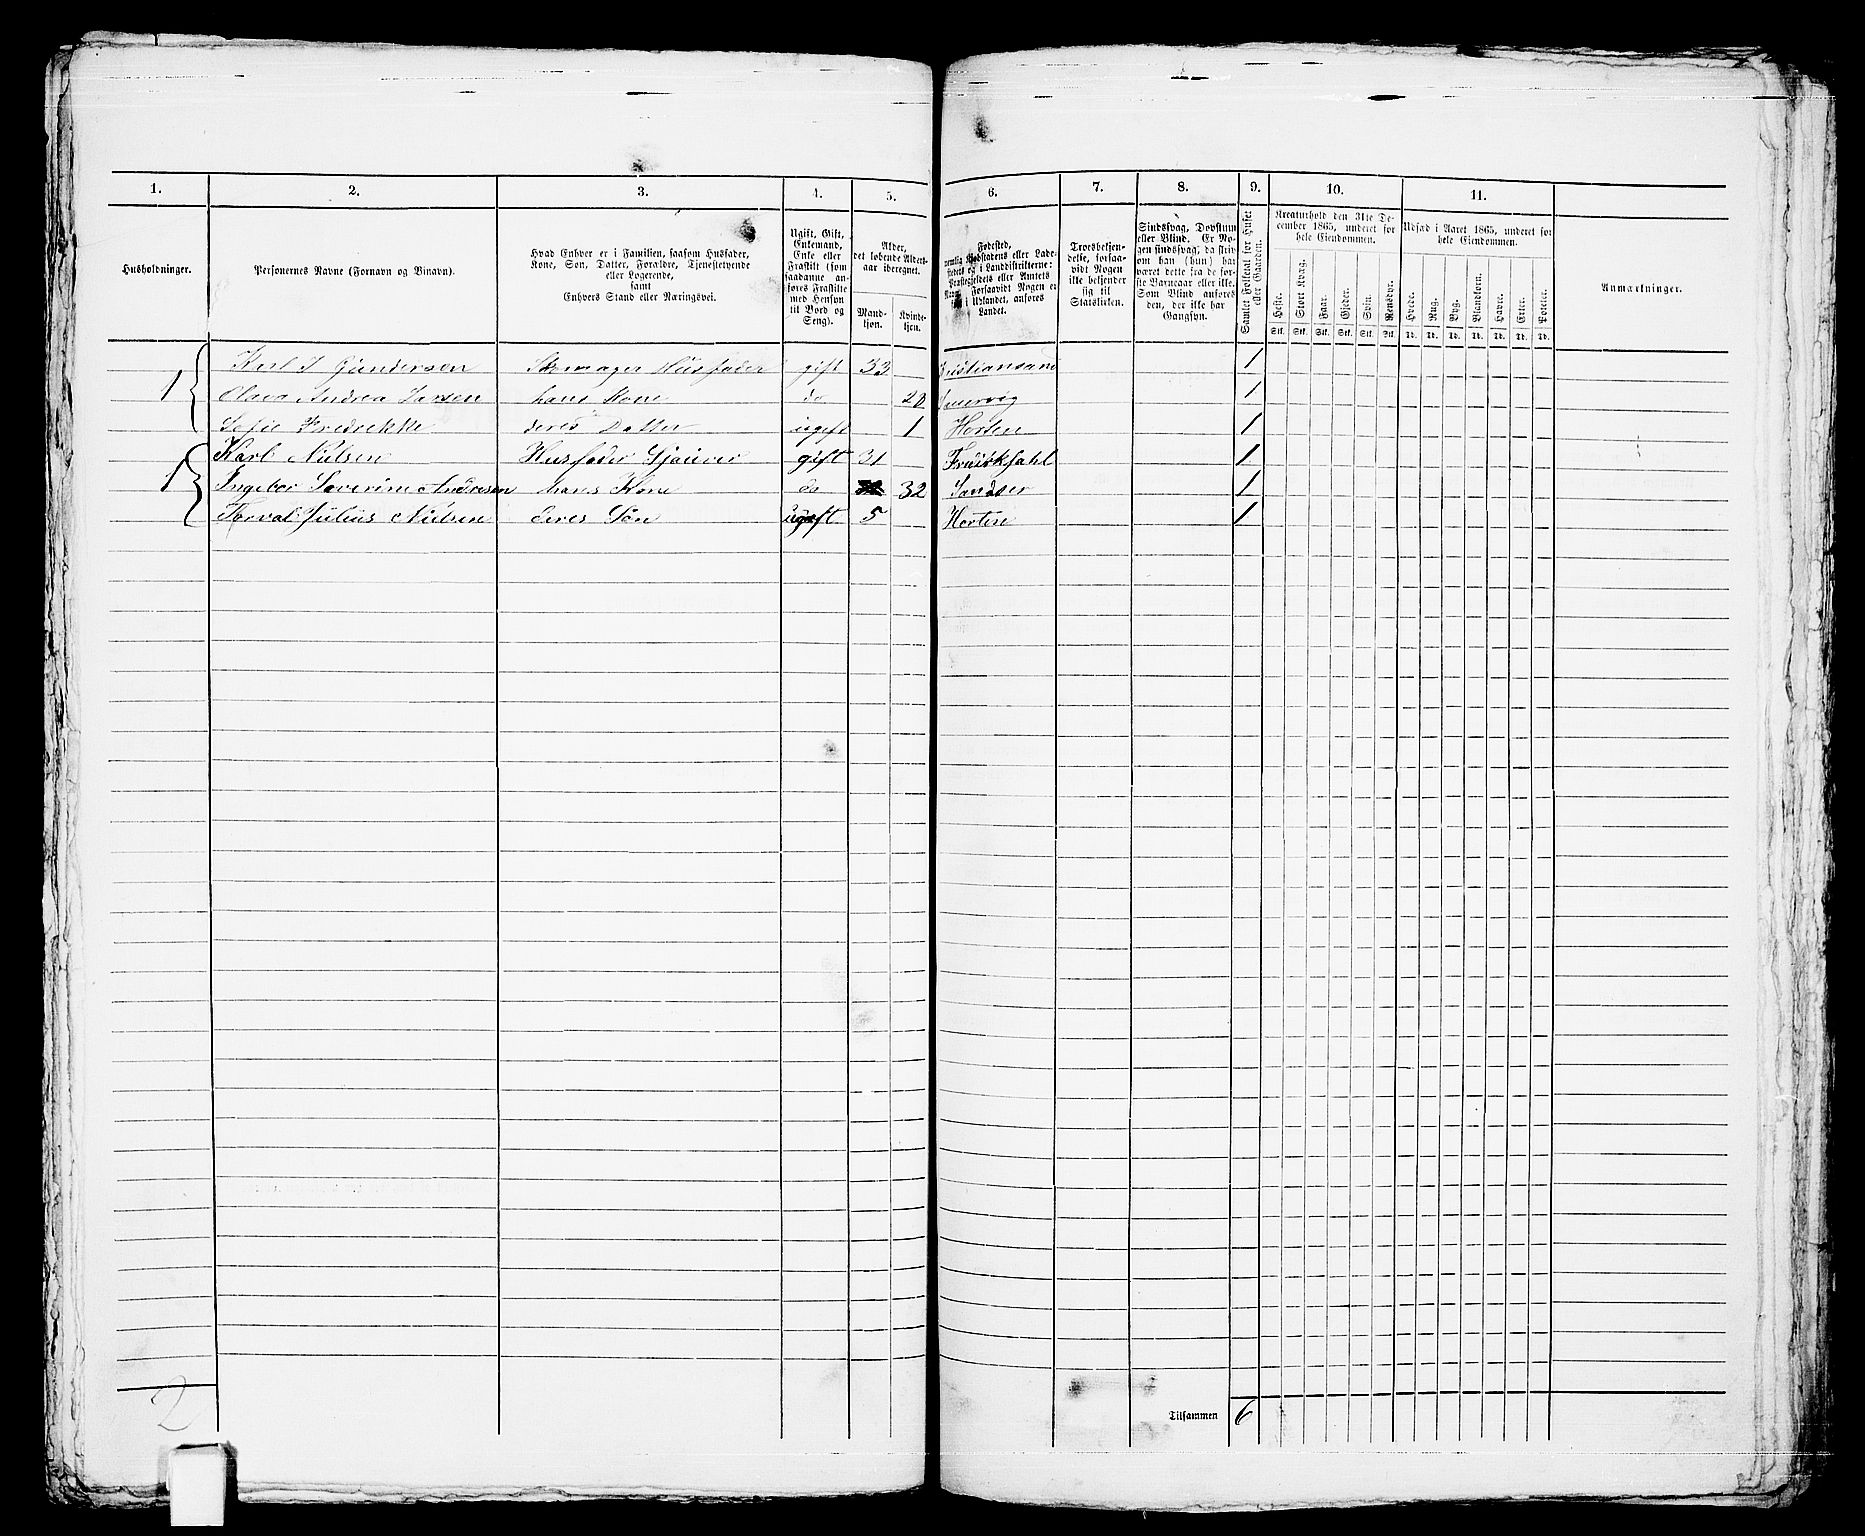 1. 2. 3. 4. 5. 6. 7. 8. 9. 10. 11.
Husholdninger.
Personernes Navne (Fornavn og Binavn).
Hvad Enhver er i Familien, saasom Husfader,
Kone, Søn, Datter, Forældre, Tjenestetyende
eller Logerende,
samt
Enhvers Stand eller Næringsvei.
Ugift, Gift,
Enkemand,
Enke eller
Fraskilt (som
saadanne an-
føres Fraskilte
med Hensyn
til Bord og
Seng).
Alder,
det løbende Alders-
aar iberegnet.
Mand-
kjøn.
Kvinde-
kjøn.
Fødested,
Kjøbstadens eller Lade-
stedets og i Landdistrikterne:
Præstegjeldets eller Amtets
Navn. Forsaavidt Nogen er
i Udlandet, anføres
Landet.
Troesbekjen-
delse, forsaa-
vidt Nogen
ikke bekjender
sig til
Statskirken.
Sindssvag, Døvstum
eller Blind. Er No-
gen sindssvag, da skriv
om han (hun) har
været dette fra de før-
ste Barneaar eller ikke.
Som Blind anføres
den, der ikke har
Gangsyn.
Samlet Folketal for Huset
eller Gaarden.
Kreaturhold den 31te De-
cember 1865, underet for
hele Eiendommen.
Heste. Stort Kvæg. Faar. Gjeder. Svin. Rensdyr.
Stk. Stk. Stk. Stk. Stk. Stk.
Udsæd i Aaret 1865, underet for
hele Eiendommen.
Hvede. Rug. Byg. Blandkorn. Havre. Erter. Poteter.
Td. Td. Td. Td. Td. Td. Td.
Anmærkninger.
1 Karl J Gundersen Skomager Husfader gift 33 Kristiansand 1
Olava Andrea Larsen hans Kone do 1
Sofie Fredrekke deres Datter ugift 1 Horten 1
1 Karl Nilsen Husfader gift 31 1
Ingebor Saverine Andresen hans Kone do 32 1
Torval Julius Nilsen Deres Søn ugift 5 Horten 1
Tilsammen 6
2